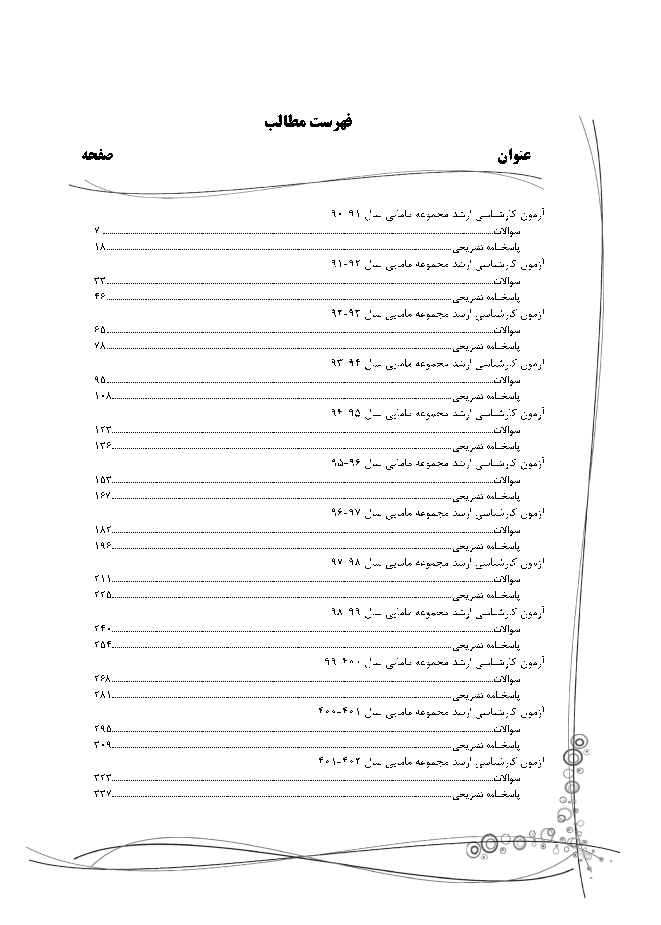 فهرست مطالب
عنوان صفحه
آزمون کارشناسی ارشد مجموعه مامایی سال ۹۱-۹۰
سوالات ۷
پاسخنامه تشریحی ۱۸
آزمون کارشناسی ارشد مجموعه مامایی سال ۹۲-۹۱
سوالات ۳۳
پاسخنامه تشریحی ۴۶
آزمون کارشناسی ارشد مجموعه مامایی سال ۹۳-۹۲
سوالات ۶۵
پاسخنامه تشریحی ۷۸
آزمون کارشناسی ارشد مجموعه مامایی سال ۹۴-۹۳
سوالات ۹۵
پاسخنامه تشریحی ۱۰۸
آزمون کارشناسی ارشد مجموعه مامایی سال ۹۵-۹۴
سوالات ۱۲۳
پاسخنامه تشریحی ۱۳۶
آزمون کارشناسی ارشد مجموعه مامایی سال ۹۶-۹۵
سوالات ۱۵۳
پاسخنامه تشریحی ۱۶۷
آزمون کارشناسی ارشد مجموعه مامایی سال ۹۷-۹۶
سوالات ۱۸۲
پاسخنامه تشریحی ۱۹۶
آزمون کارشناسی ارشد مجموعه مامایی سال ۹۸-۹۷
سوالات ۲۱۱
پاسخنامه تشریحی ۲۲۵
آزمون کارشناسی ارشد مجموعه مامایی سال ۹۹-۹۸
سوالات ۲۴۰
پاسخنامه تشریحی ۲۵۴
آزمون کارشناسی ارشد مجموعه مامایی سال ۴۰۰-۹۹
سوالات ۲۶۸
پاسخنامه تشریحی ۲۸۱
آزمون کارشناسی ارشد مجموعه مامایی سال ۴۰۱-۴۰۰
سوالات ۲۹۵
پاسخنامه تشریحی ۳۰۹
آزمون کارشناسی ارشد مجموعه مامایی سال ۴۰۲-۴۰۱
سوالات ۳۲۳
پاسخنامه تشریحی ۳۳۷